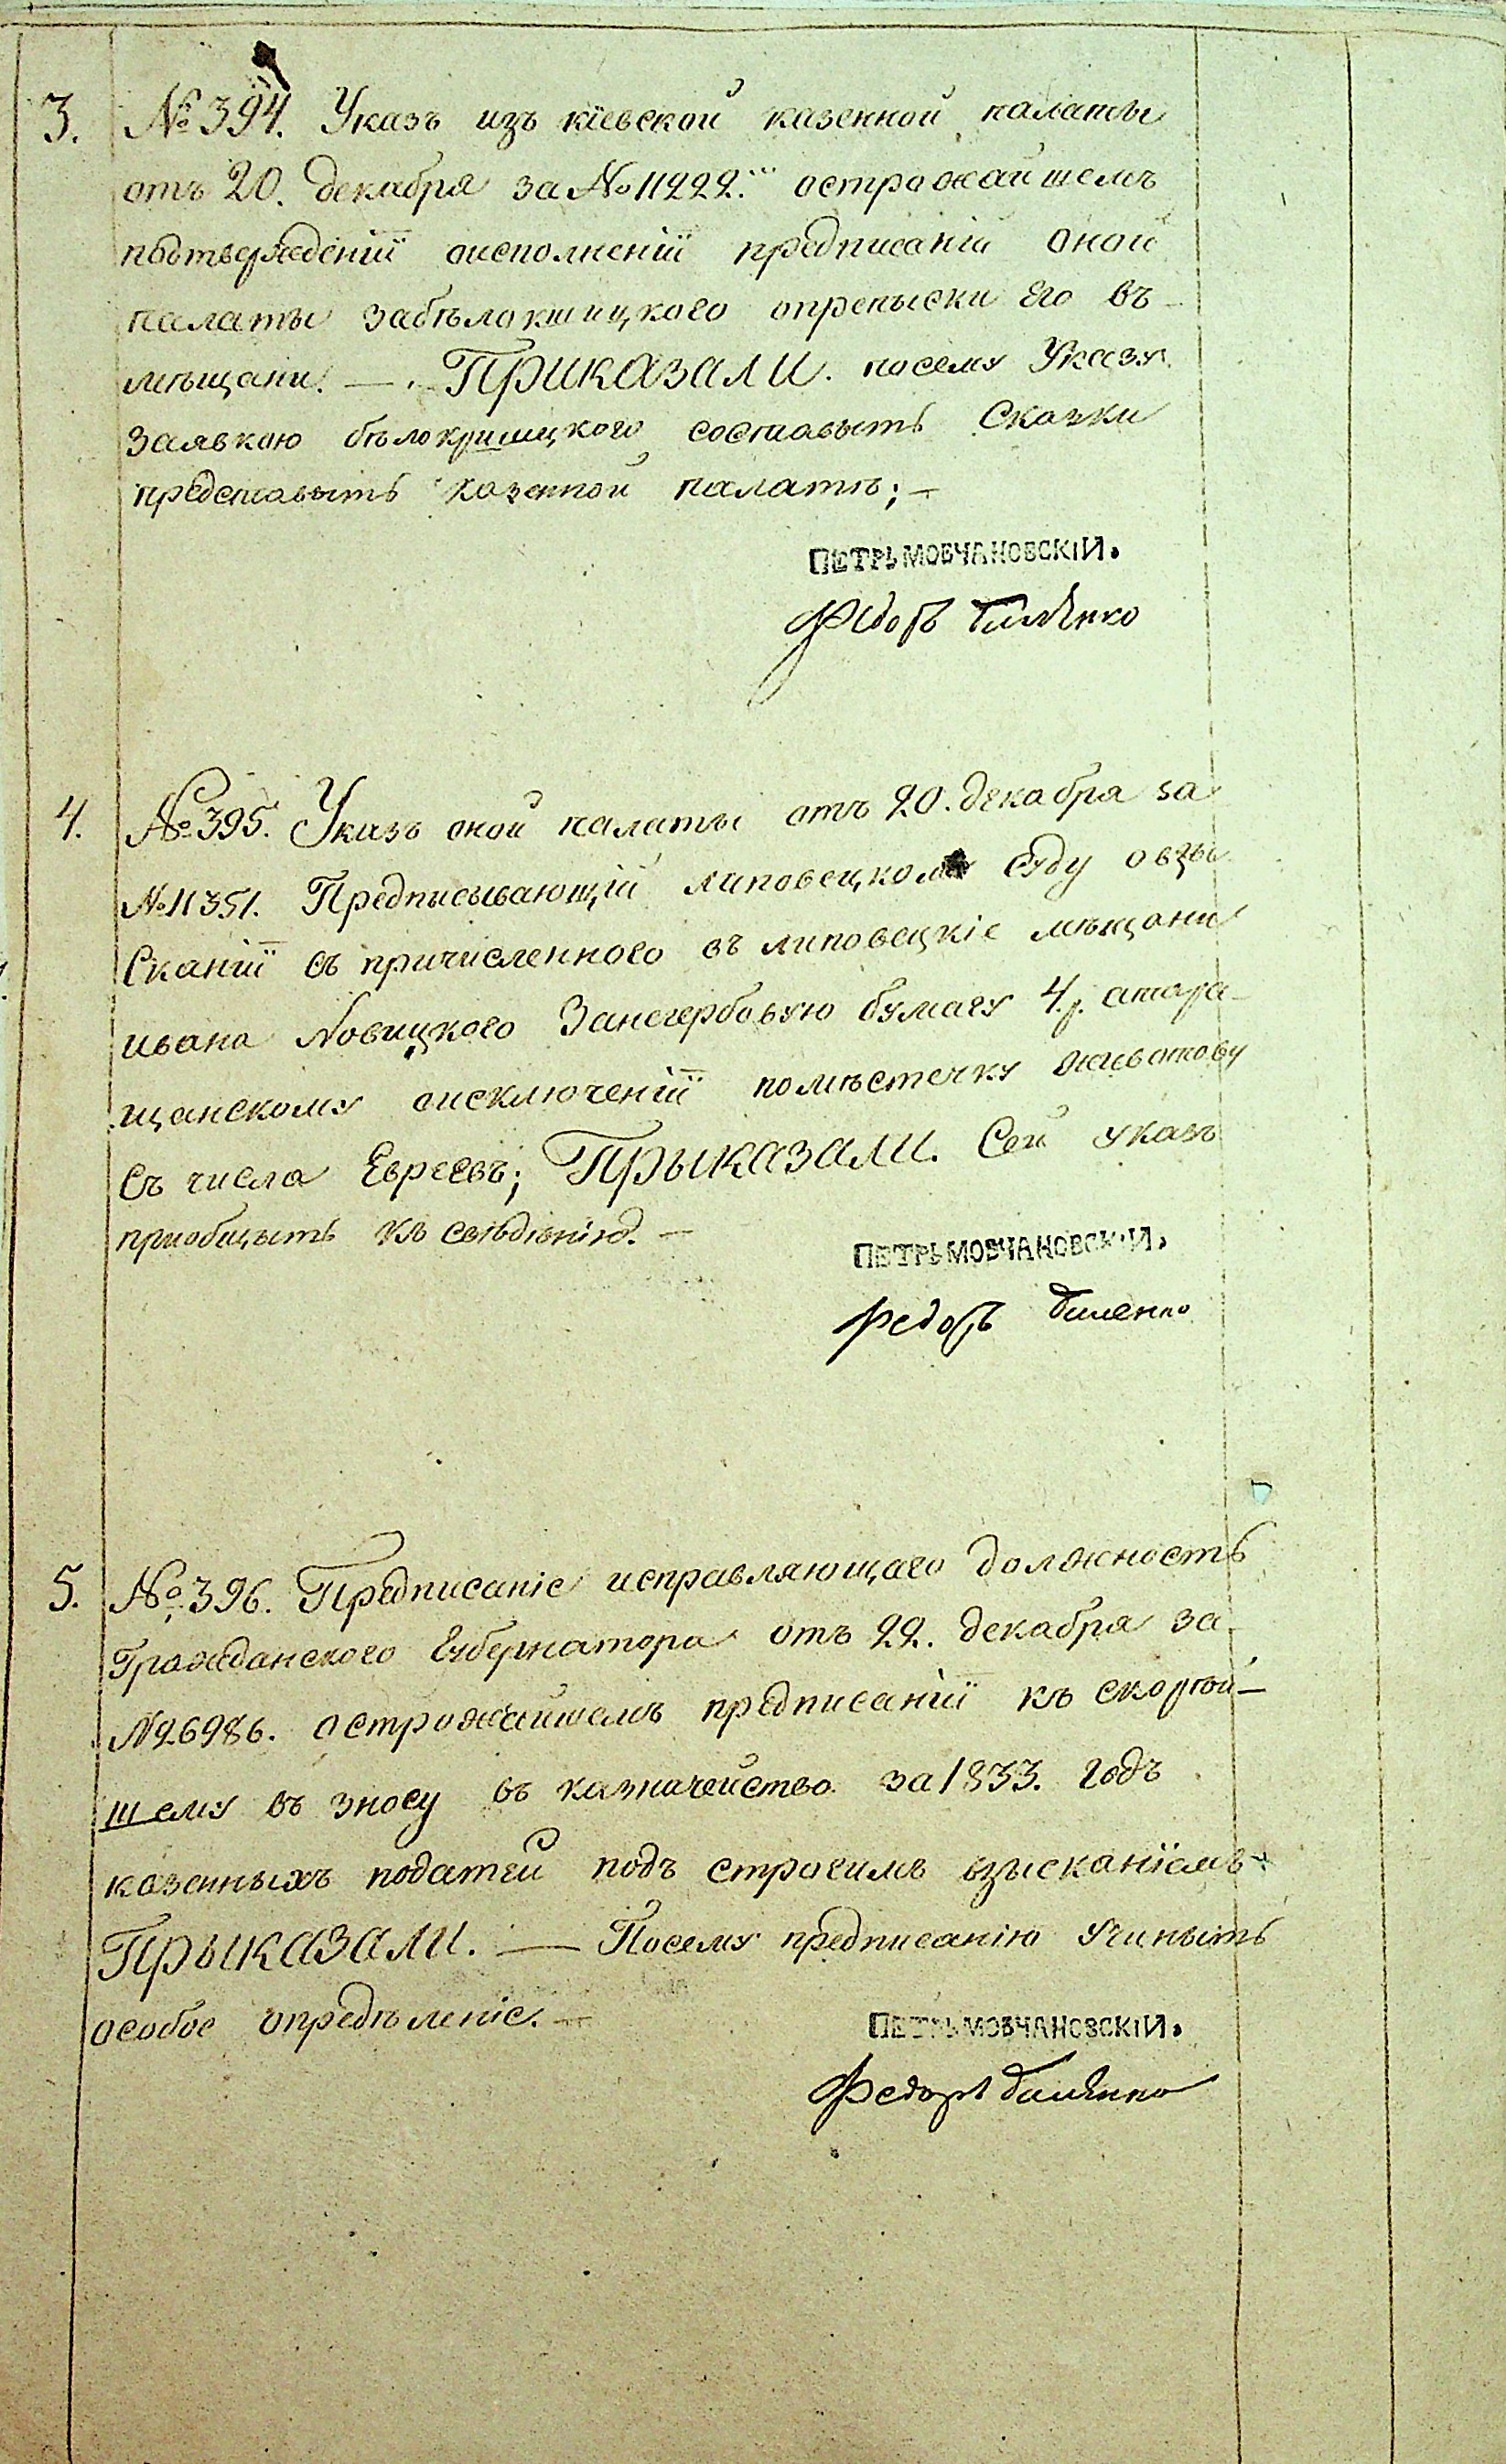 3. № 394. Указъ изъ кіевской казенной палаты
отъ 20. декабря за № 11222. острожайшемъ
подтвержденіи оисполненіи предписаній оной
палаты забѣлокшицкого опрепыски его въ
мѣщани. — ПРИКАЗАЛИ. посему Указу
Заявкою бѣлокришицкого составыть Сказки
представыть казенной палатѣ; —
ПЕТРЬ МОВЧАНОВСКІЙ.
Федоръ Биленко
4. № 395. Указъ оной палаты отъ 20. декабра за
№ 11351. Предписывающій липовецкому суду овзы
сканіи съ причисленного въ липовецкіе мѣщани
ивана Новицкого Занегербовую бумагу 4 р. атара
щанскому оисключеніи помѣстечку животову
съ числа Евреевъ; ПРЫКАЗАЛИ. Сей указъ
приобщыть къ свѣдѣнію. —
ПЕТРЬ МОВЧАНОВСКІЙ.
Федоръ Биленко
5. № 396. Предписаніе исправляющаго должность
Гражданского Губернатора отъ 22. декабря за
№ 26986. острожайшемъ предписаніи къ скорѣй-
шему въ зносу въ казначейство за 1833. годъ
казенныхъ податей подъ строгимъ взысканіемъ
ПРЫКАЗАЛИ. — Посему предписанію Учиныть
особое опредѣленіе. —
ПЕТРЬ МОВЧАНОВСКІЙ.
Федоръ Биленко